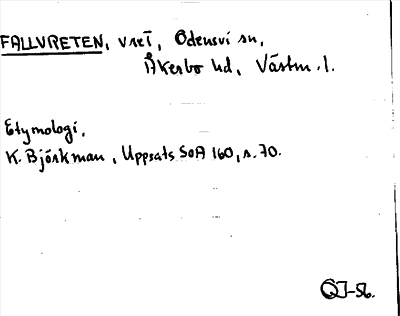 FALLVRETEN, vret, Odensvi sn,
Åkerbo hd, Västm. l.
Etymologi,
K. Björkman, Uppsats SOA 160, s. 70.
ÖJ-56.